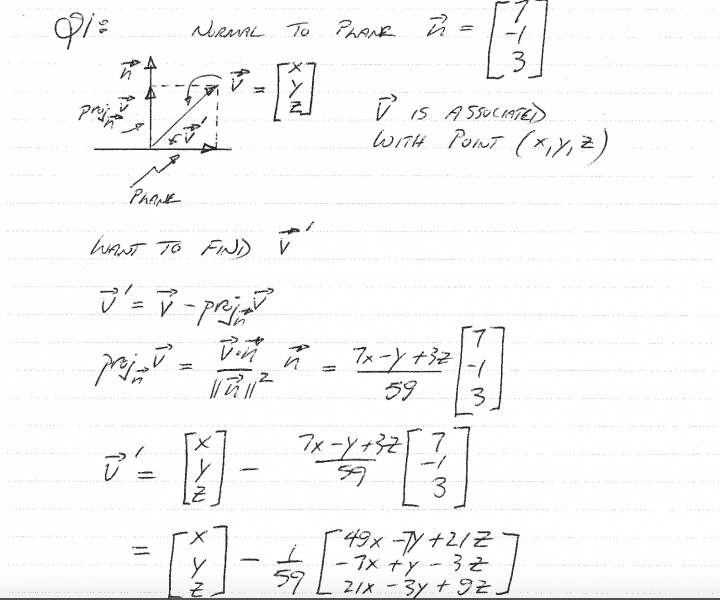 Q1: NORMAL TO PLANE n⃗ = [7 -1 3]
n⃗
v⃗ = [x y z]
proj_n⃗ v⃗
v⃗'
PLANE
v⃗ IS ASSOCIATED
WITH POINT (x,y,z)
WANT TO FIND v⃗'
v⃗' = v⃗ - proj_n⃗ v⃗
proj_n⃗ v⃗ = (v⃗·n⃗)/||n⃗||² n⃗ = (7x-y+3z)/59 [7 -1 3]
v⃗' = [x y z] - (7x-y+3z)/59 [7 -1 3]
= [x y z] - 1/59 [49x-7y+21z -7x+y-3z 21x-3y+9z]